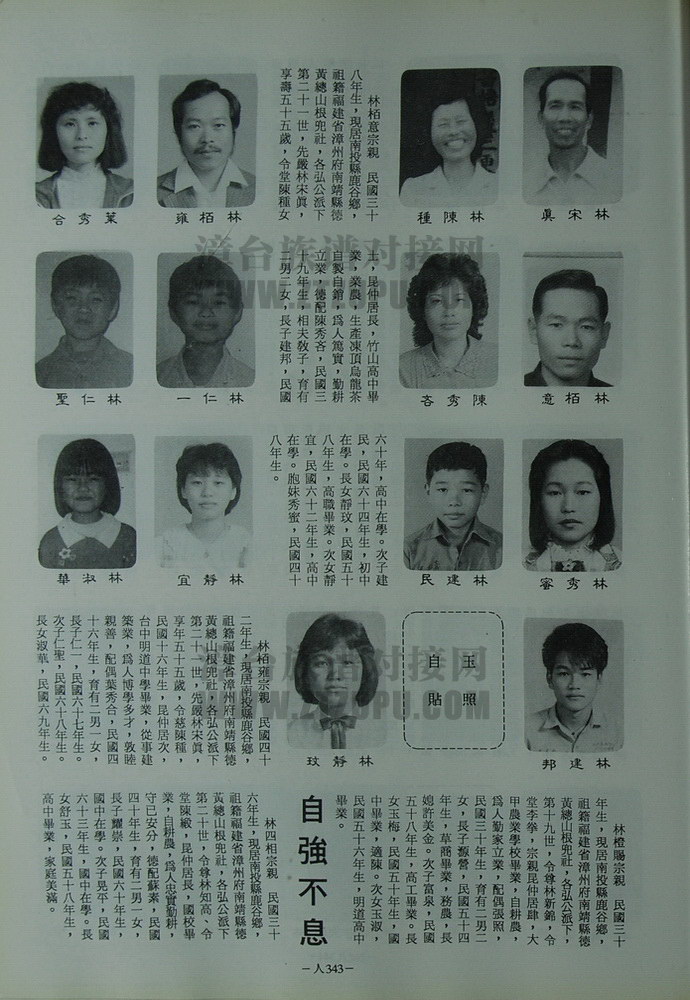 林宋眞
林陳種
林栢意宗親　民國三十
八年生，現居南投縣鹿谷鄉，
祖籍福建省漳州府南靖縣德
黃總山根兜社，各弘公派下
第二十一世，先嚴林宋眞，
享壽五十五歲，令堂陳種女
林栢雍
葉秀合
林栢意
陳秀吝
士，昆仲居長，竹山高中畢
業，業農，生產凍頂烏龍茶
自製自銷，爲人篤實，勤耕
立業，德配陳秀吝，民國三
十九年生，相夫敎子，育有
二男二女，長子建邦，民國
林仁一
林仁聖
林秀寧
林建民
六十年，高中在學。次子建
民，民國六十四年生，初中
在學。長女靜玟，民國五十
八年生，高職畢業。次女靜
宜，民國六十二年生，高中
在學。胞妹秀寧，民國四十
八年生。
林靜宜
林淑華
林建邦
玉照
自貼
林靜玟
林栢雍宗親　民國四十
二年生，現居南投縣鹿谷鄉，
祖籍福建省漳州府南靖縣德
黃總山根兜社，各弘公派下
第二十一世，先嚴林宋眞，
享年五十五歲，令慈陳種，
民國十六年生，昆仲居次，
台中明道中學畢業，從事建
築業，爲人博學多才，敦睦
親善，配偶葉秀合，民國四
十六年生，育有二男一女，
長子仁一，民國六十七年生。
次子仁聖，民國六十八年生。
長女淑華，民國六九年生。
林橙賜宗親　民國三十
年生，現居南投縣鹿谷鄉，
祖籍福建省漳州府南靖縣德
黃總山根兜社，各弘公派下，
第十九世，令尊林新錦，令
堂李拳，宗親昆仲居肆，大
甲農業學校畢業，自耕農，
爲人勤家立業，配偶張照，
民國三十年生，育有二男二
女，長子源營，民國五十四
年生，草商畢業，務農，長
媳許美金。次子富泉，民國
五十八年生，高工畢業。長
女玉梅，民國五十年生，國
中畢業，適陳。次女玉淑，
民國五十六年生，明道高中
畢業。
自強不息
林四相宗親　民國三十
六年生，現居南投縣鹿谷鄉，
祖籍福建省漳州府南靖縣德
黃總山根兜社，各弘公派下
第二十世，令尊林知高、令
堂陳緞，昆仲居長，國校畢
業，自耕農，爲人忠實勤耕，
守已安分，德配蘇素，民國
四十年生，育有二男一女，
長子耀崇，民國六十年生，
國中在學。次子晃平，民國
六十三年生，國中在學。長
女舒玉，民國五十八年生，
高中畢業，家庭美滿。
－人343－
漳台族谱对接网
WWW.ZTZUPU.COM
漳台族谱对接网
WWW.ZTZUPU.COM